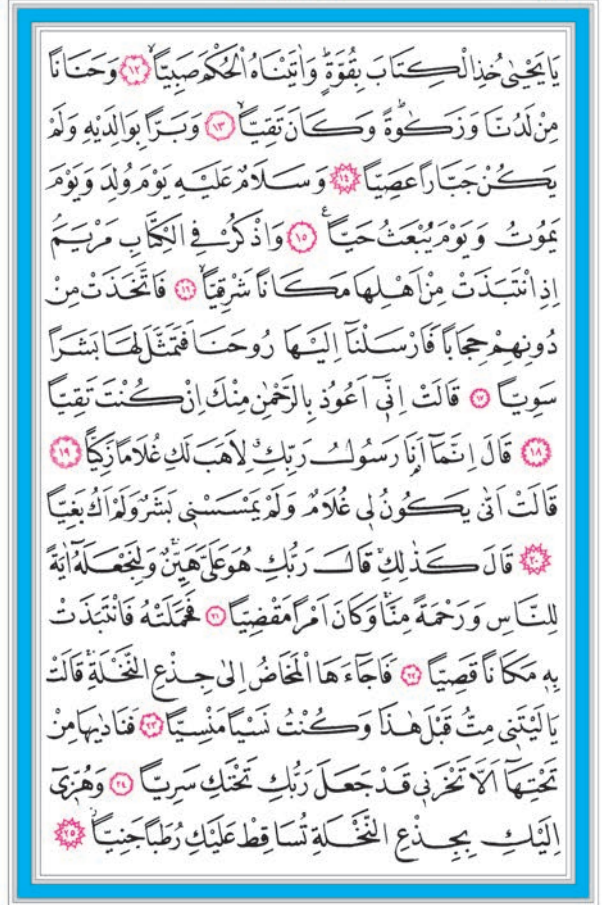 يَا يَحْيٰى خُذِ الْكِتَابَ بِقُوَّةٍۜ وَاٰتَيْنَاهُ الْحُكْمَ صَبِيًّاۙ ﴿١٢﴾ وَحَنَانًا
مِنْ لَدُنَّا وَزَكٰوةًۜ وَكَانَ تَقِيًّاۙ ﴿١٣﴾ وَبَرًّا بِوَالِدَيْهِ وَلَمْ
يَكُنْ جَبَّارًا عَصِيًّا ﴿١٤﴾ وَسَلَامٌ عَلَيْهِ يَوْمَ وُلِدَ وَيَوْمَ
يَمُوتُ وَيَوْمَ يُبْعَثُ حَيًّا۟ ﴿١٥﴾ وَاذْكُرْ فِي الْكِتَابِ مَرْيَمَۢ
اِذِ انْتَبَذَتْ مِنْ اَهْلِهَا مَكَانًا شَرْقِيًّاۙ ﴿١٦﴾ فَاتَّخَذَتْ مِنْ
دُونِهِمْ حِجَابًا فَاَرْسَلْنَٓا اِلَيْهَا رُوحَنَا فَتَمَثَّلَ لَهَا بَشَرًا
سَوِيًّا ﴿١٧﴾ قَالَتْ اِنّ۪ٓي اَعُوذُ بِالرَّحْمٰنِ مِنْكَ اِنْ كُنْتَ تَقِيًّا
﴿١٨﴾ قَالَ اِنَّمَٓا اَنَا۬ رَسُولُ رَبِّكِۗ لِاَهَبَ لَكِ غُلَامًا زَكِيًّا ﴿١٩﴾
قَالَتْ اَنّٰى يَكُونُ ل۪ي غُلَامٌ وَلَمْ يَمْسَسْن۪ي بَشَرٌ وَلَمْ اَكُ بَغِيًّا
﴿٢٠﴾ قَالَ كَذٰلِكِۚ قَالَ رَبُّكِ هُوَ عَلَيَّ هَيِّنٌۚ وَلِنَجْعَلَهُٓ اٰيَةً
لِلنَّاسِ وَرَحْمَةً مِنَّاۚ وَكَانَ اَمْرًا مَقْضِيًّا ﴿٢١﴾ فَحَمَلَتْهُ فَانْتَبَذَتْ
بِه۪ مَكَانًا قَصِيًّا ﴿٢٢﴾ فَاَجَٓاءَهَا الْمَخَاضُ اِلٰى جِذْعِ النَّخْلَةِۚ قَالَتْ
يَا لَيْتَن۪ي مِتُّ قَبْلَ هٰذَا وَكُنْتُ نَسْيًا مَنْسِيًّا ﴿٢٣﴾ فَنَادٰيهَا مِنْ
تَحْتِهَٓا اَلَّا تَحْزَن۪ي قَدْ جَعَلَ رَبُّكِ تَحْتَكِ سَرِيًّا ﴿٢٤﴾ وَهُزّ۪ٓي
اِلَيْكِ بِجِذْعِ النَّخْلَةِ تُسَاقِطْ عَلَيْكِ رُطَبًا جَنِيًّاۘ ﴿٢٥﴾